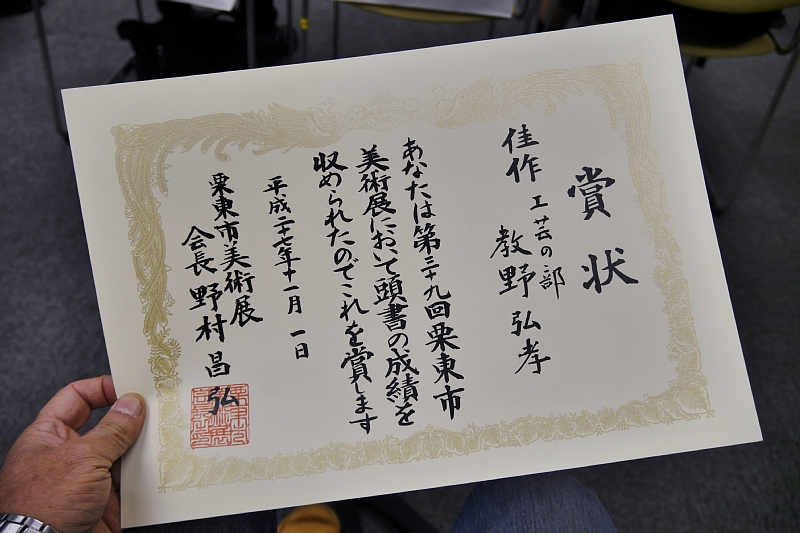 賞状
佳作 工芸の部
教野弘孝
あなたは第三十九回栗東市
美術展において頭書の成績を
収められたのでこれを賞します
平成二十七年十一月一日
栗東市美術展
会長 野村昌弘